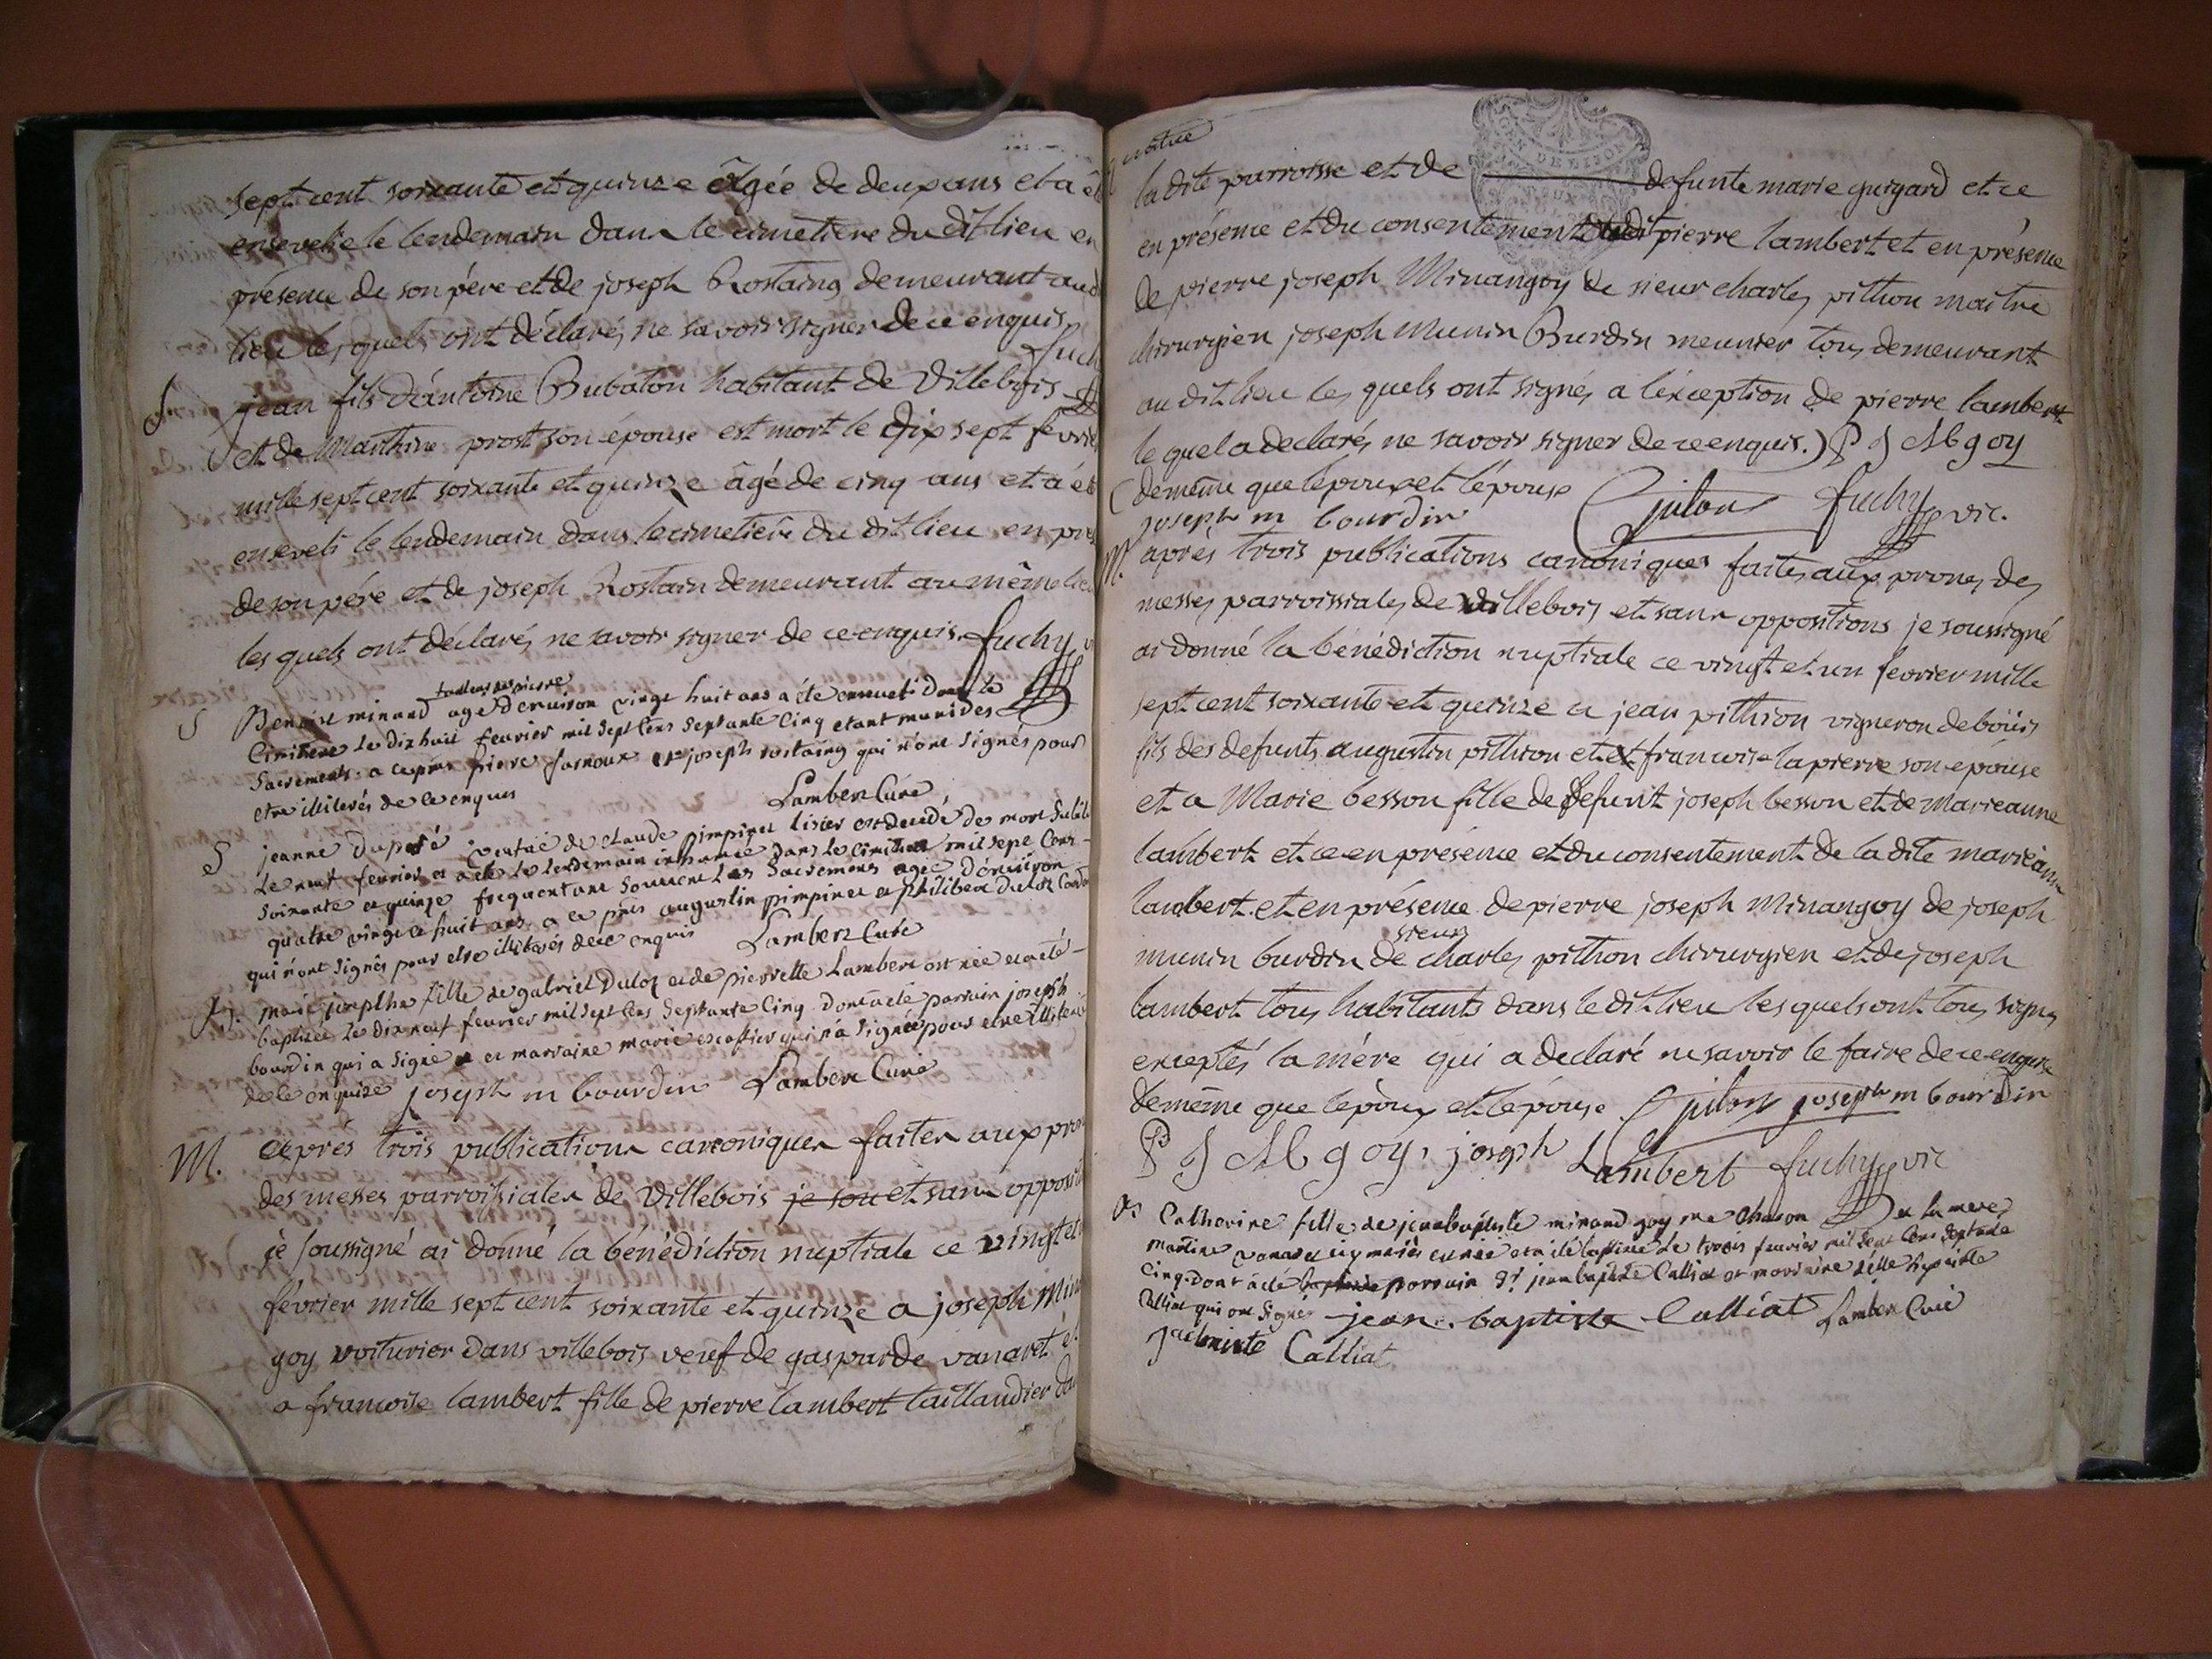 sept cent soixante et quinze âgée de deux ans et a été
ensevelie le lendemain dans le cimetiere du dit lieu en
présence de son père et de joseph Rostaing demeurant aud
lieu les quels ont déclarés ne savoir signer de ce enquis
fuch
S jean fils d'antoine Bubaton habitant de Villebois
et de Manthine prost son épouse est mort le Dix sept fevrie
mille sept cent soixante et quinze âgé de cinq ans et a ét
enseveli le lendemain dans le cimetiére du dit lieu en pres
de son pére et de joseph Rostain demeurant au même lieu
les quels ont déclarés ne savoir signer de ce enquis. fuchy v
tailleur de pierre
S Benoist minand age d'environ vingt huit ans a été enseveli dans le
Cimitiere le dix huit feurier mil sept Cens septante Cinq etant muni des
Sacrements. a ce pnts pierre et joseph rostaing qui n'ont signés pour
etre illiterés de ce enquis Lambert Curé
S jeanne veuve de claude pimpinet est decedé de mort
Le neuf feurier et a été le lendemain inhumée dans le Cimitiere mil sept Cens
soixante et quinze frequentant souvent les sacremens agée d'environ
quatre vingt huit ans a ce pnts augustin pimpinet et philibert Duloz
qui n'ont signés pour etre illiterés de ce enquis Lambert Curé
B. marie josephte fille de gabriel Duloz et de pierrette Lambert est née et a été
baptisée le dix neuf feurier mil sept Cens septante Cinq dont a été parrain joseph
bourdin qui a signé et marraine marie qui n'a signée pour etre illiterée
de ce enquise joseph m bourdin Lambert Curé
M. après trois publications canoniques faites aux pro
des messes parroissiales de Villebois je sou et sans opposi
je soussigné ai donné la bénédiction nuptiale ce vingt et
février mille sept cent soixante et quinze a joseph Min
goy voiturier dans villebois veuf de gasparde vanaret et
a francoise lambert fille de pierre lambert taillandier da
la dite parroisse et de defunte marie guigard et ce
en présence et du consentement dudit pierre lambert et en présence
de pierre joseph Minangoy de sieur charles pithon maître
chirurgien joseph Munin Burdin meunier tous demeurant
au dit lieu les quels ont signés a l'éxception de pierre lambert
le quel a declarés ne savoir signer de ce enquis.) P J Mb goy
(demême que l'époux et l'épouse pitons fuchy vic.
joseph m bourdin
M. après trois publications canoniques faites aux prones des
messes parroissiales de Villebois et sans oppositions je soussigné
ai donné la bénédiction nuptiale ce vingt et un fevrier mille
sept cent soixante et quinze a jean pithion vigneron de bouis
fils des defunts augustin pithion et et francoise lapierre son épouse
et a Marie besson fille de defunt joseph besson et de marieanne
lambert et ce en présence et du consentement de la dite marieanne
lambert. et en présence de pierre joseph Minangoy de joseph
sieur
munin burdin de charles pithon chirurgien et de joseph
lambert tous habitants dans le dit lieu les quels ont tous signés
exceptés la mère qui a declaré ne savoir le faire de ce enquise
demême que l'époux et l'épouse pitons joseph m bourdin
P J Mb goy, joseph Lambert fuchy vic
B Catherine fille de jeanbaptiste minand goy me et la mere
martine vanaret est née et a été baptisée le trois feurier mil sept Cens septante
Cinq. dont a été parrain Sr jeanbaptiste Calliat et marraine délle hyacinthe
Calliat qui ont signé jean. baptiste Calliat Lambert Curé
Calliat